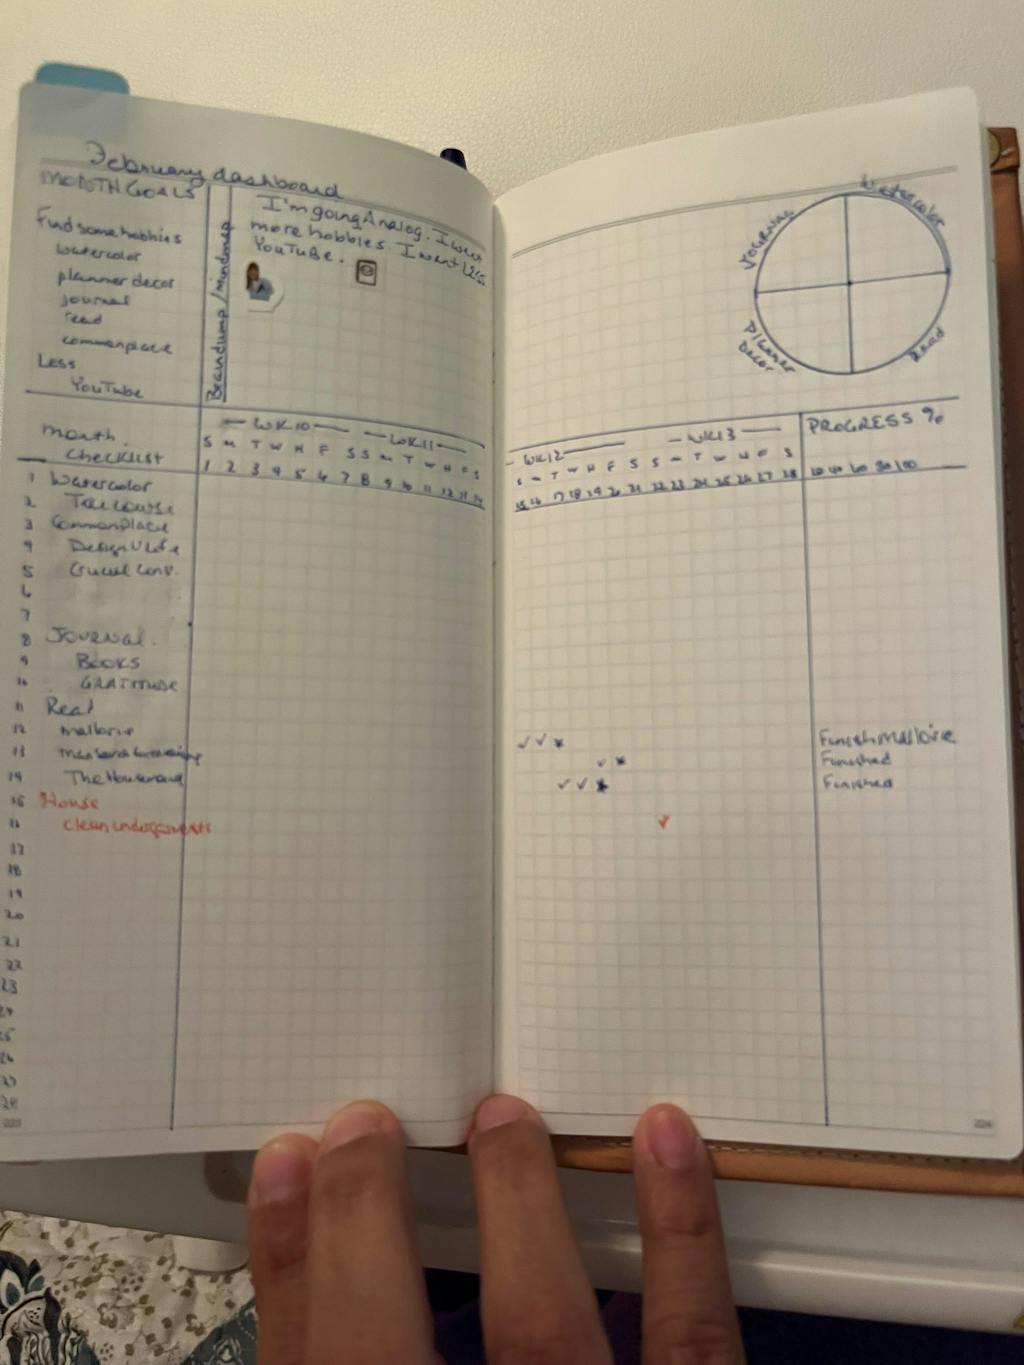 February dashboard
MONTH GOALS
Find some hobbies
watercolor
planner decor
journal
read
commonplace
Less
YouTube
Braindump/mindmap
I'm going Analog. I want
more hobbies. I want less
YouTube.
Journing
Watercolor
Planner
Decor
Read
month
Checklist
WK10
WK11
S M T W H F S S M T W H F S
1 2 3 4 5 6 7 8 9 10 11 12 13 14
WK12
WK13
S M T W H F S S M T W H F S
15 16 17 18 19 20 21 22 23 24 25 26 27 28
PROGRESS %
20 40 60 80 100
1 Watercolor
2 Take course
3 Commonplace
4 Design U Life
5 Crucial Conv.
6
7
8 JOURNAL.
9 BOOKS
10 GRATITUDE
11 Read
12 Mallorie
Finish Mallorie
13
Finished
14 The Housemaid
Finished
15 House
16 Clean
17
18
19
20
21
22
23
24
25
26
27
28
223
224